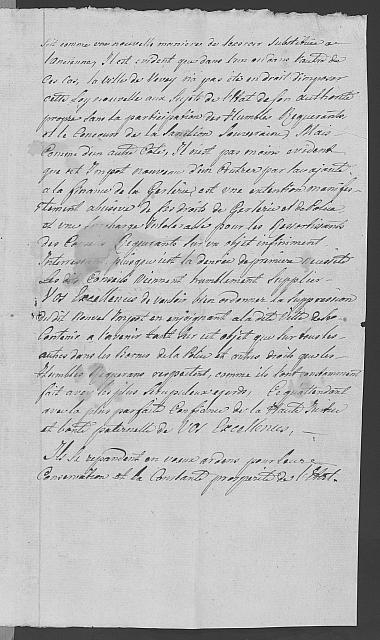 soit comme une nouvelle maniere de lacerer substituée a
l'ancienne, Il est evident que dans l'un ou dans l'autre de
ces cas, la ville de Vevey n'a pas été en droit d'imposer
cette Loy nouvelle aux Sujets de l'Etat de son authorité
propre sans la participation des Humbles Requerants,
et le Concours de la Sanction Souveraine, Mais
Comme d'un autre Coté, Il n'est pas moins evident
que cet Impot nouveau d'un par sac ajouté
a la finance de la Gerlerie, est une extention manifes-
tement abusive de ses droits de Gerlerie et de Police
et une surcharge intolerable pour les Ressortissants
des Conseils Requerants sur un objet infiniment
Interessant puisque c'est la denrée de premiere necessité
Les dits Conseils Viennent humblement Supplier
Vos Excellences de vouloir bien ordonner la suppression
du dit Nouvel Impot en enjoignant a la dite Ville de se
Contenir a l'avenir tant sur cet objet que sur tous les
autres dans les Bornes de la Police et autres droits que les
Humbles Requerans respectent, comme ils l'ont constamment
fait avec les plus Scrupuleux egards, Ce qu'attendant
avec la plus parfaite Confiance de la Haute Justice
et bonté paternelle de Vos Excellences,
Ils se repandent en voeux ardens pour leur
Conservation et la Constante prosperité de l'Etat.